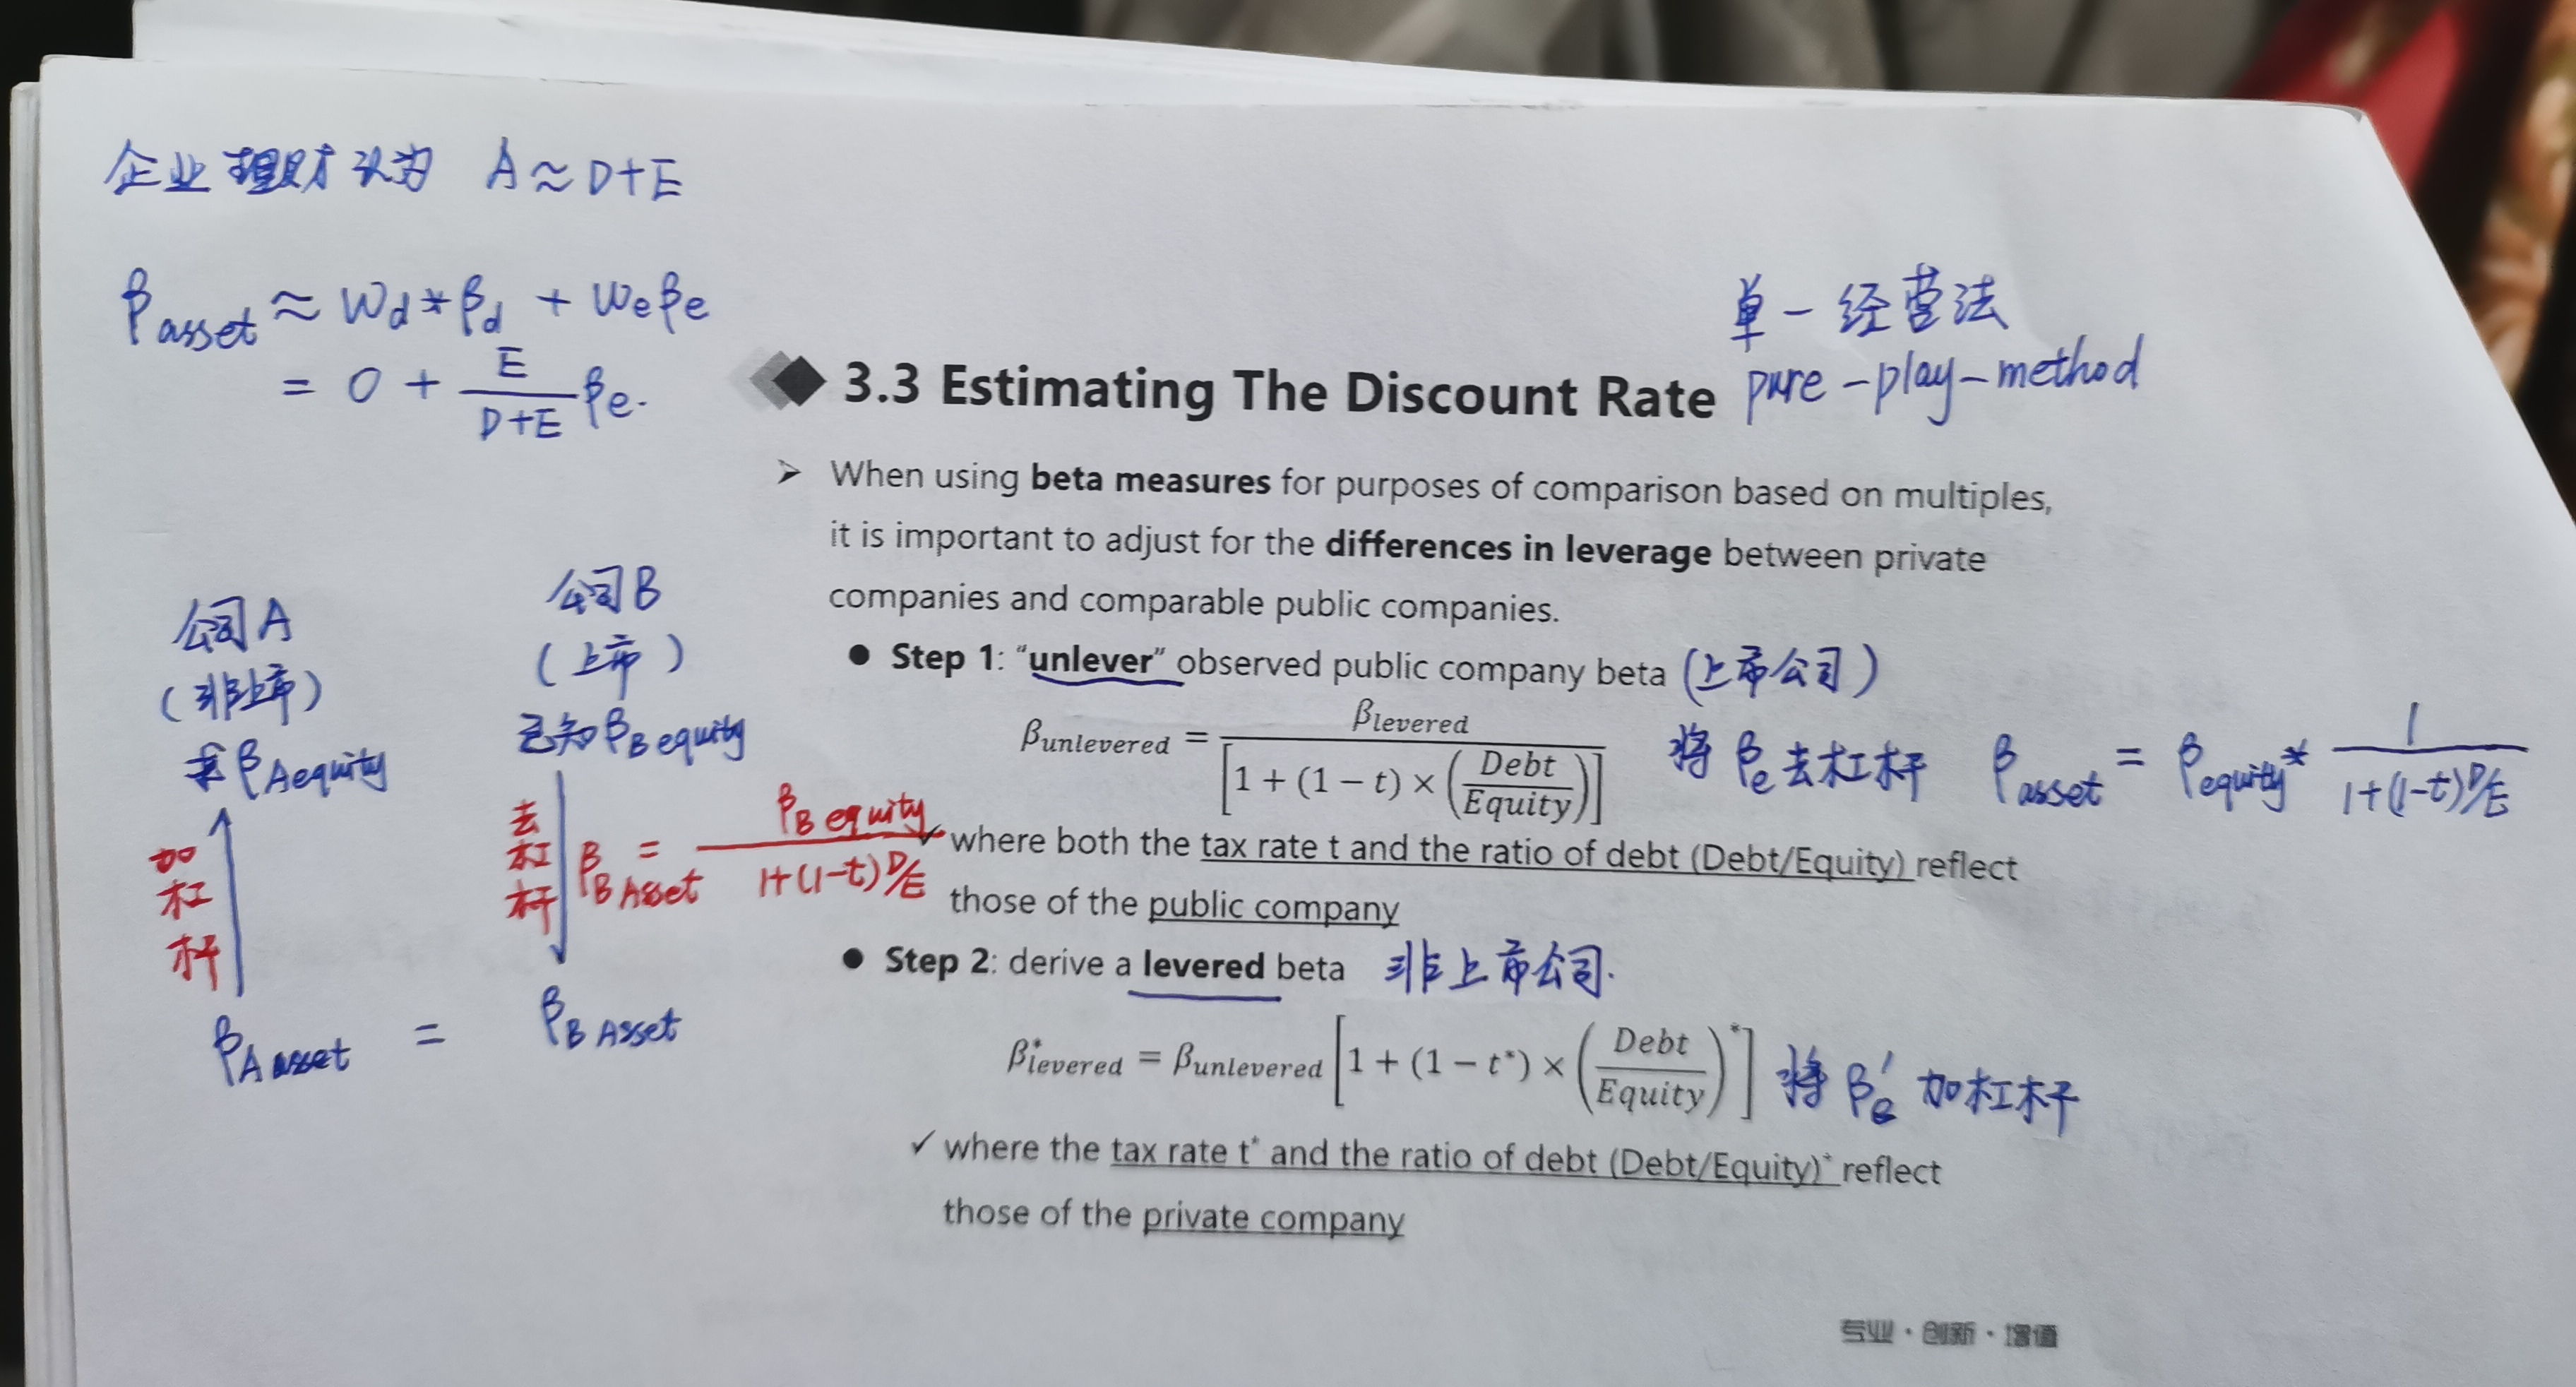 企业理财认为 A≈D+E
β asset ≈ Wd*βd + Weβe
= 0 + E/(D+E) βe.
单一经营法
pure-play-method
3.3 Estimating The Discount Rate
➢ When using beta measures for purposes of comparison based on multiples,
it is important to adjust for the differences in leverage between private
companies and comparable public companies.
● Step 1: "unlever" observed public company beta (上市公司)
β_unlevered = β_levered / [1 + (1 − t) × (Debt/Equity)]
将βe去杠杆 β asset = β equity * 1/(1+(1-t)D/E)
✓ where both the tax rate t and the ratio of debt (Debt/Equity) reflect
those of the public company
● Step 2: derive a levered beta 非上市公司.
β*_levered = β_unlevered [1 + (1 − t*) × (Debt/Equity)*]
将βe′加杠杆
✓ where the tax rate t* and the ratio of debt (Debt/Equity)* reflect
those of the private company
公司A
(非上市)
求βA equity
加杠杆
βA asset = βB Asset
公司B
(上市)
已知βB equity
去杠杆
βB Asset = βB equity / (1+(1-t)D/E)
专业·创新·增值